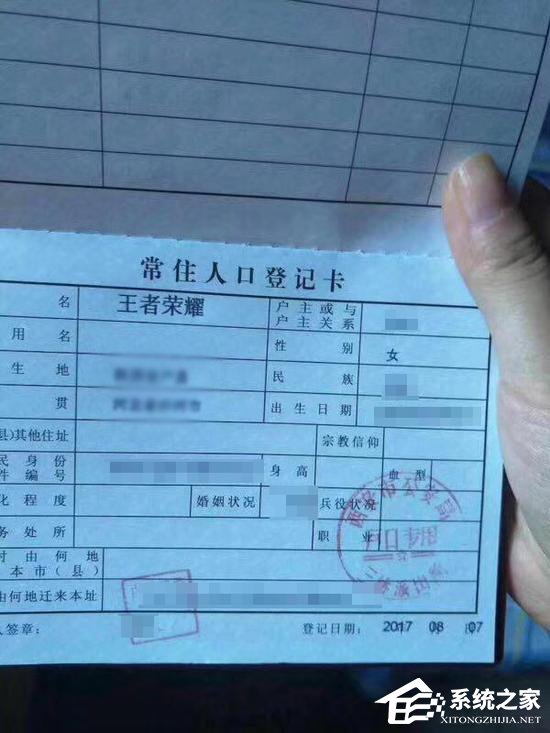 常住人口登记卡
名 王者荣耀 户主或与
户主关系
用名 性别 女
生地 民族
贯 出生日期
县)其他住址 宗教信仰
民身份
件编号 身高 血型
化程度 婚姻状况 兵役状况
务处所 职业
时由何地
本市(县)
由何地迁来本址
人签章: 登记日期: 2017 08 07
西安市公安局
户口专用
系统之家
XITONGZHIJIA.NET